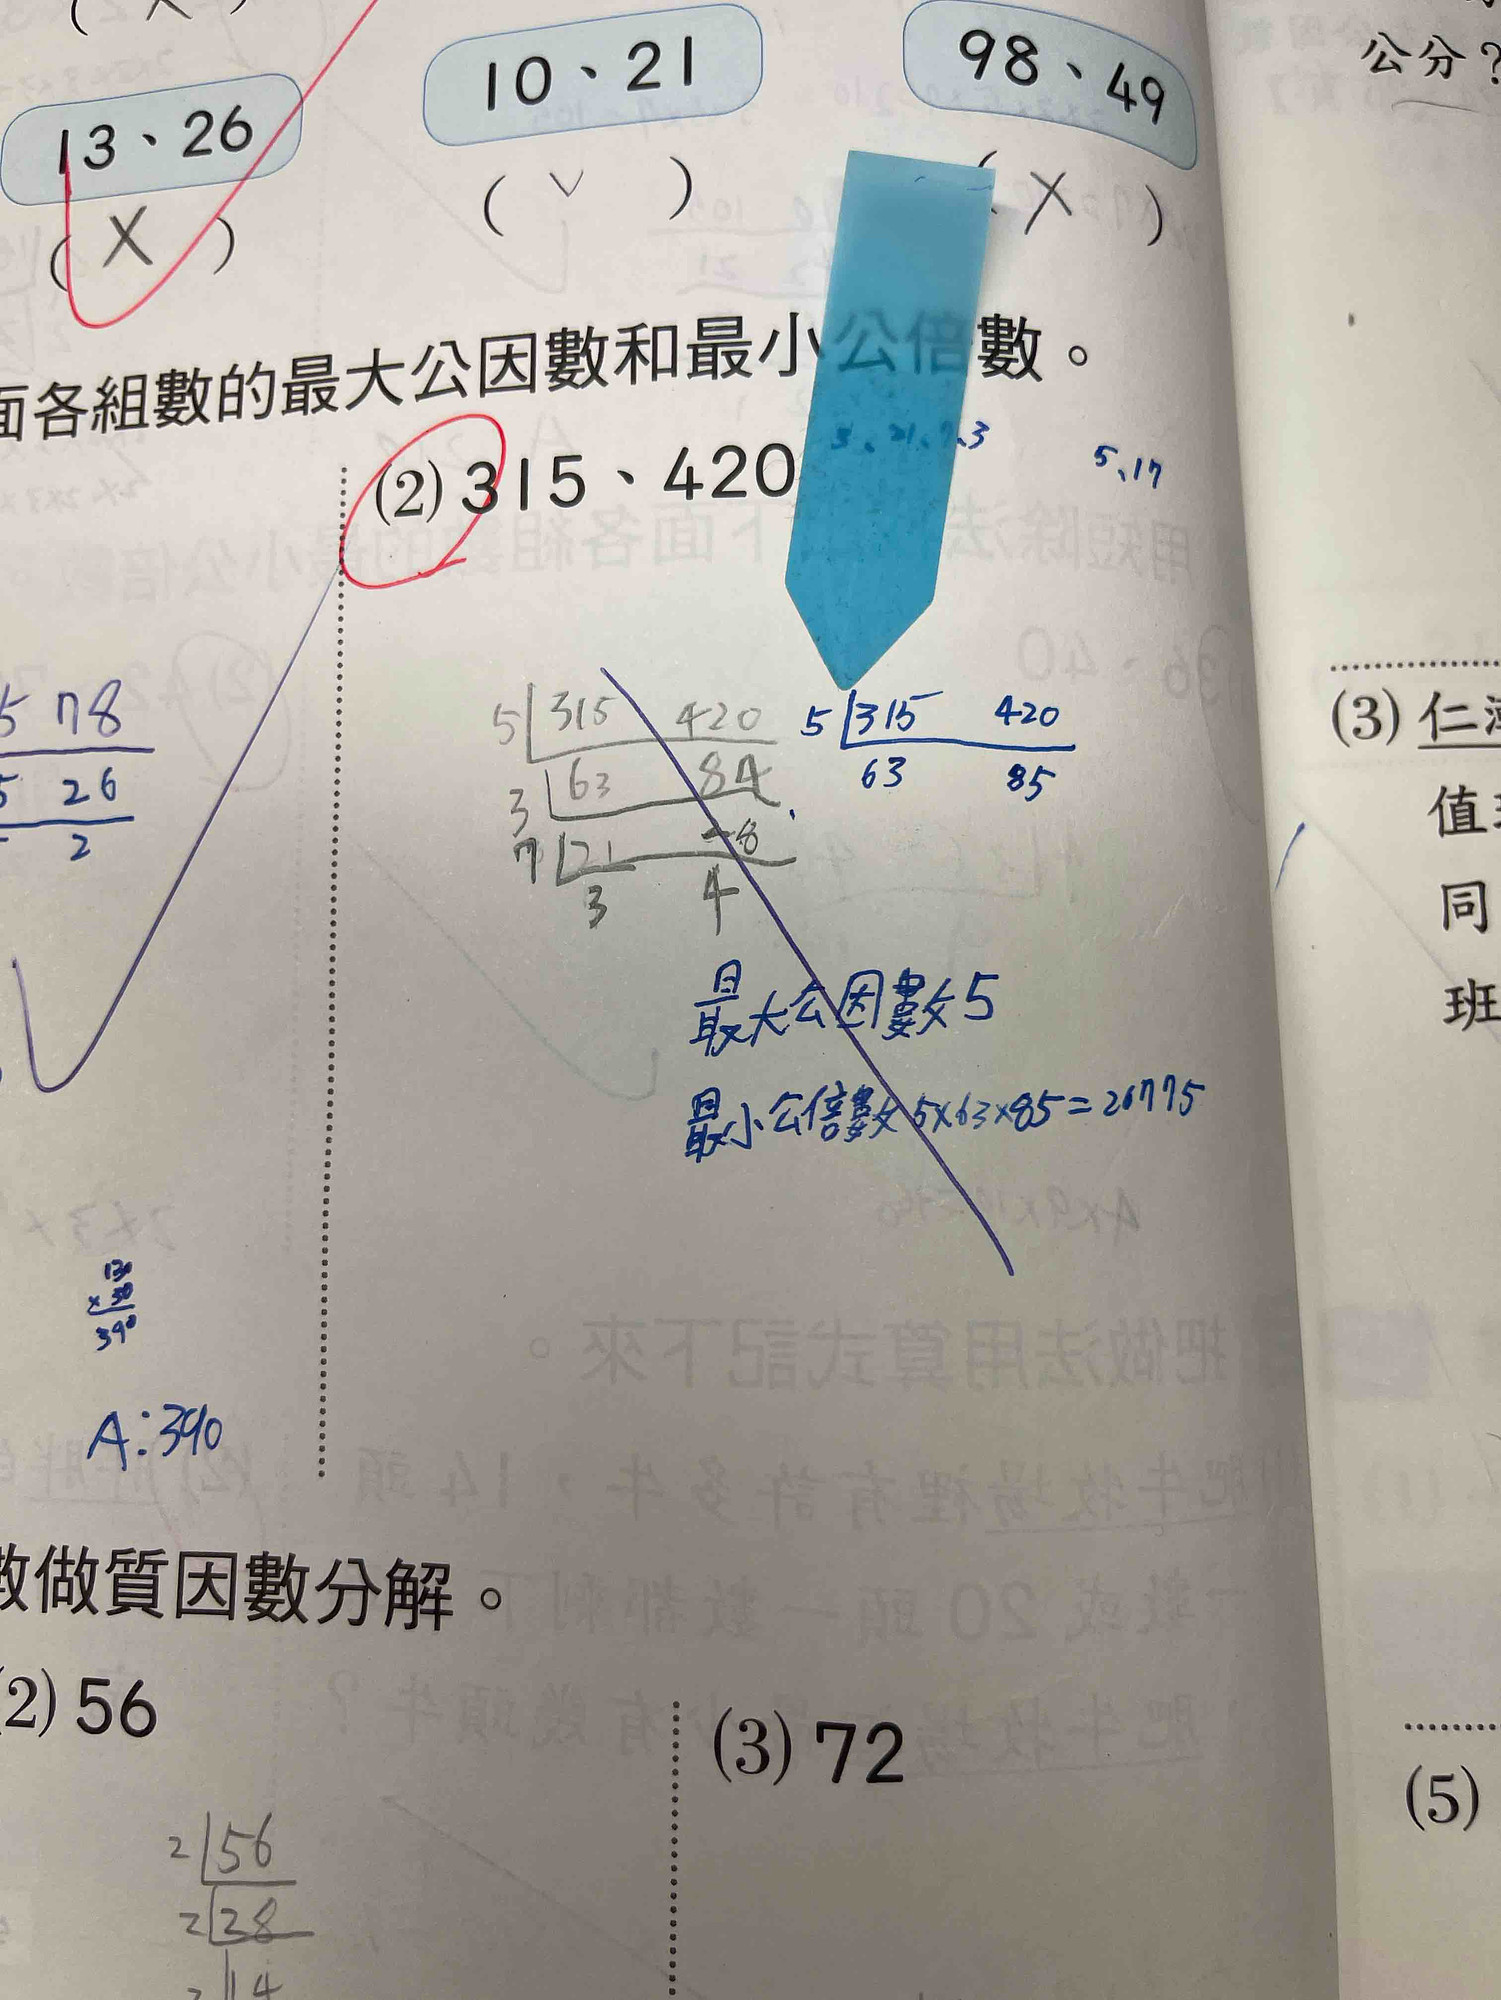 13、26
10、21
98、49
( X )
( ∨ )
( X )
面各組數的最大公因數和最小公倍數。
(2) 315、420
5、17
5 78
5 26
2
5 315 420
3 63 84
7 21 28
3 4
5 315 420
63 85
最大公因數5
最小公倍數 5×63×85=26775
130
×30
390
A:390
數做質因數分解。
(2) 56
(3) 72
2 56
2 28
2 14
公分?
(3) 仁
值
同
班
(5)